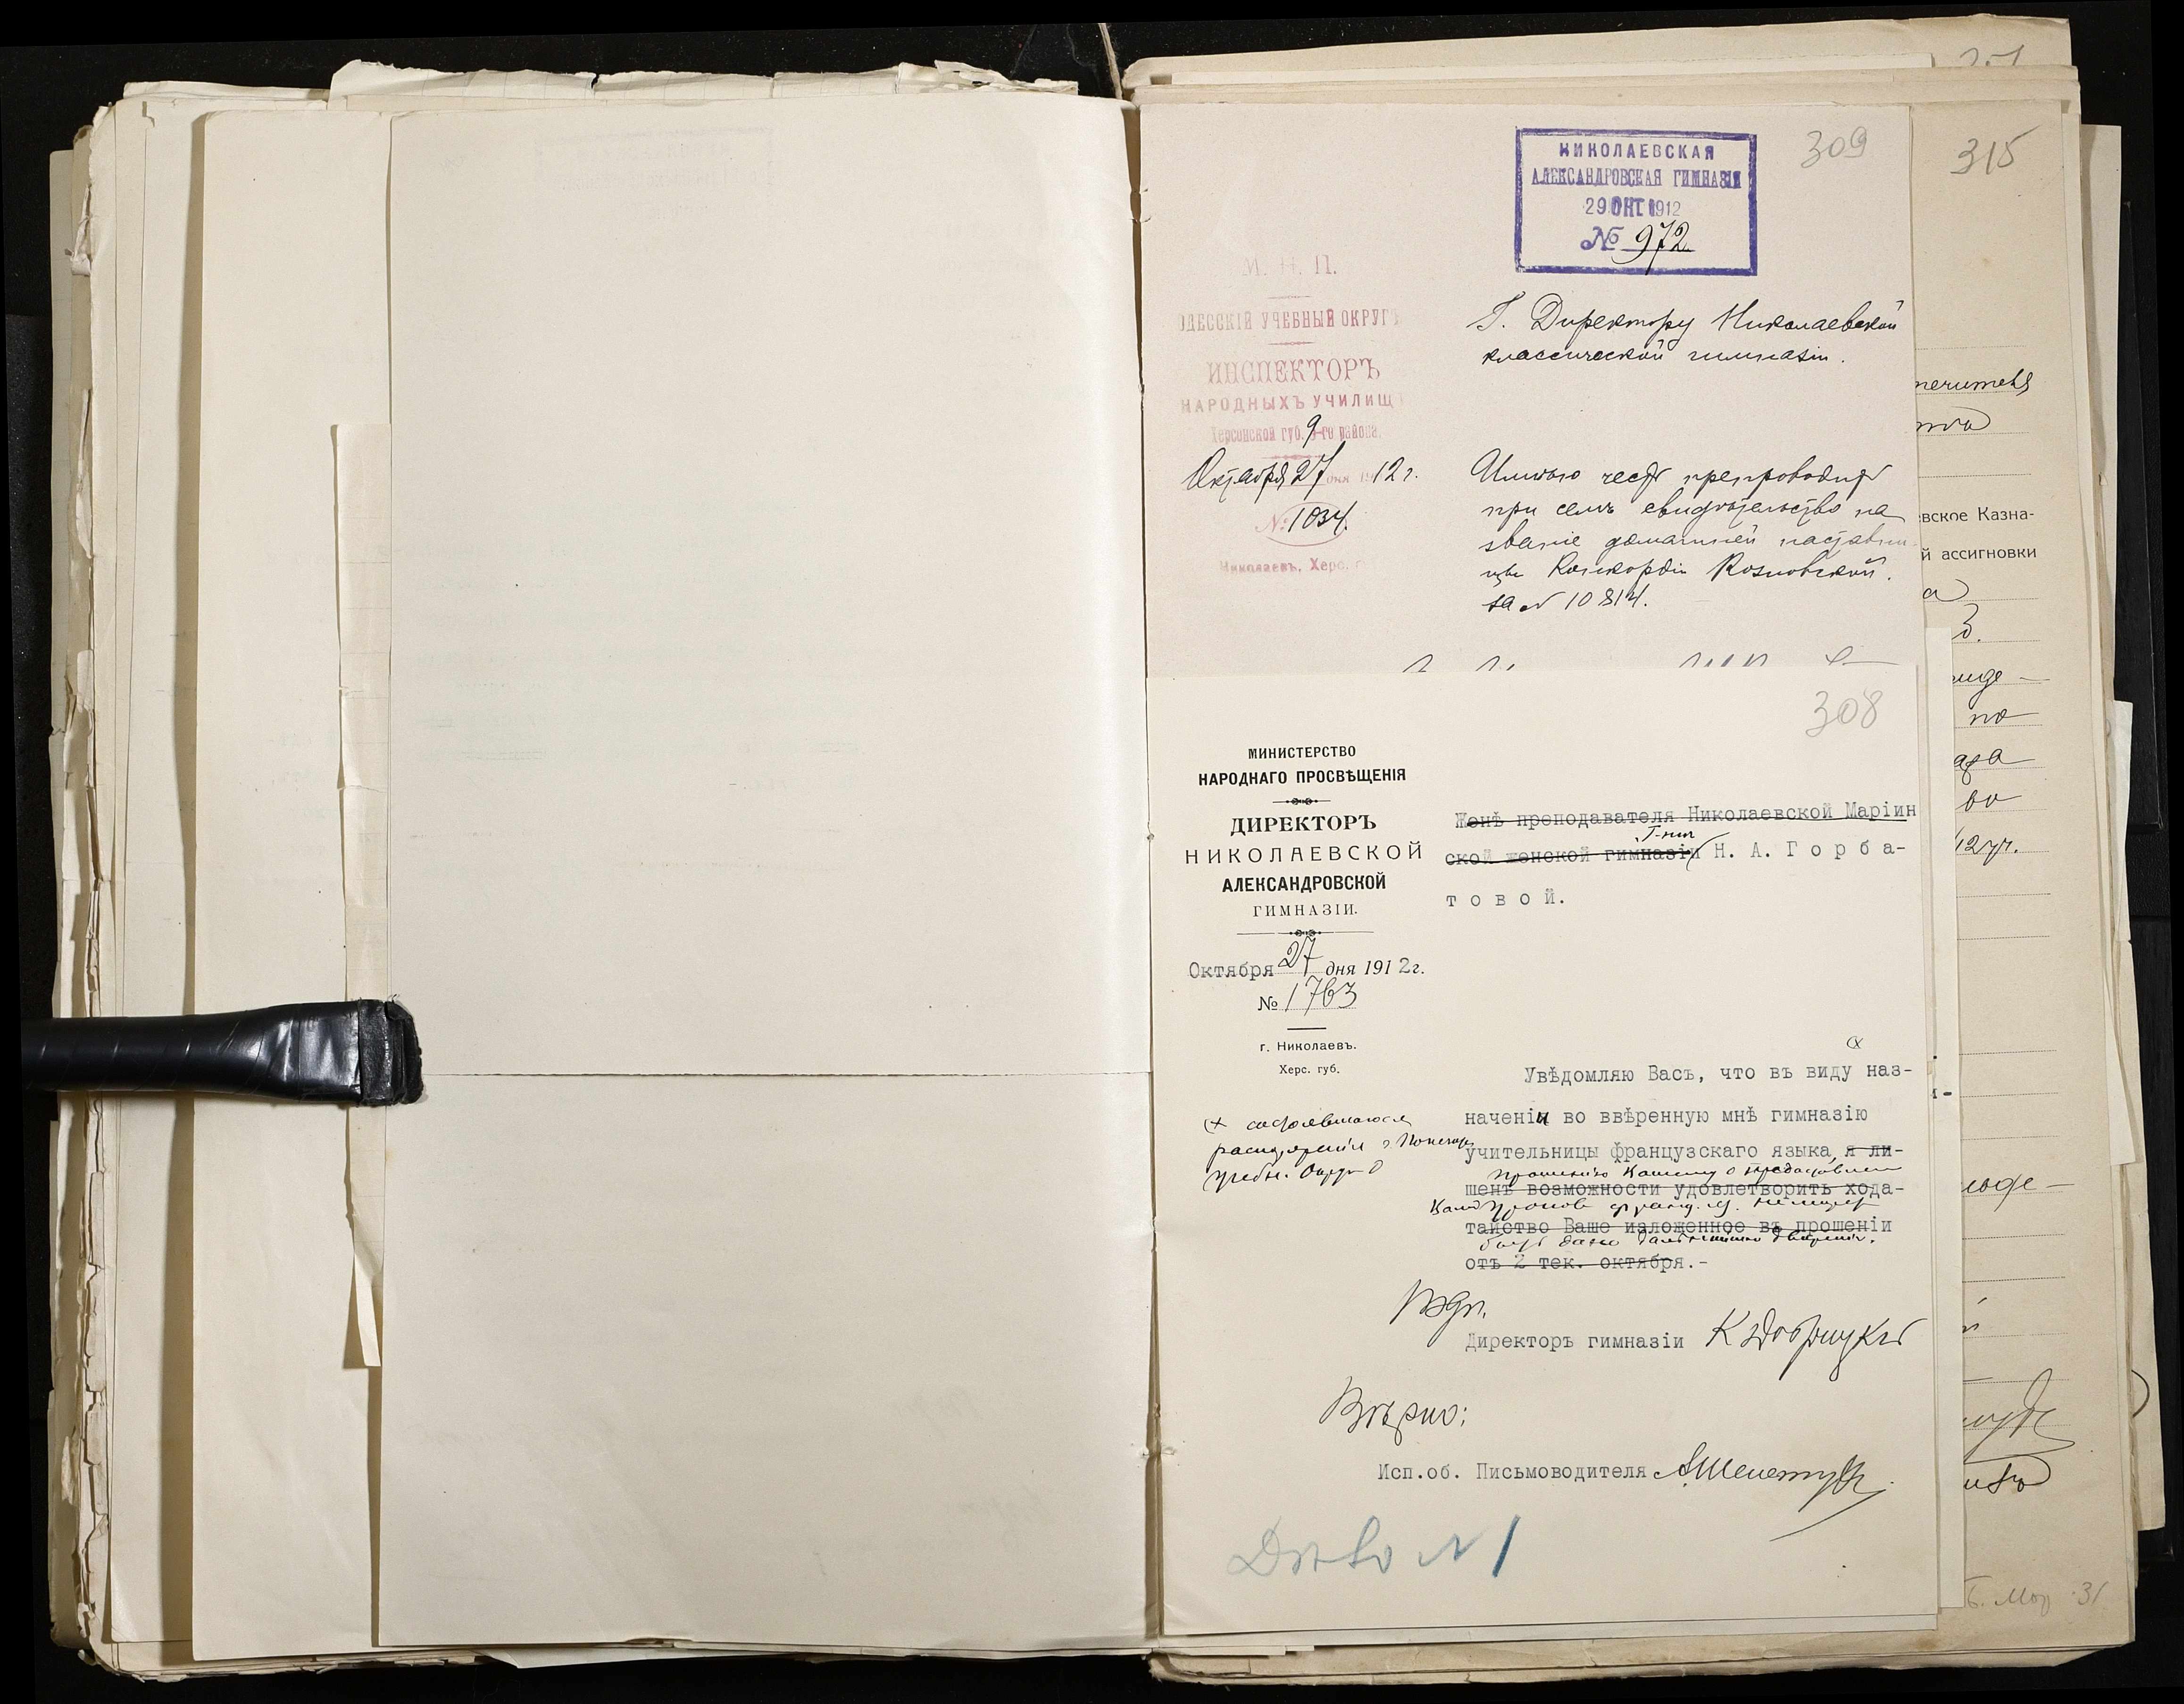 251
309
315
НИКОЛАЕВСКАЯ
АЛЕКСАНДРОВСКАЯ ГИМНАЗІЯ
29 ОКТ 1912
№ 972
М. Н. П.
ОДЕССКІЙ УЧЕБНЫЙ ОКРУГЪ
ИНСПЕКТОРЪ
НАРОДНЫХЪ УЧИЛИЩ
Херсонской губ. 9-го района.
Октября 27 дня 1912 г.
№ 1034.
Николаевъ, Херс. г
Г. Директору Николаевской
классической гимназіи.
Имѣю честь препроводить
при семъ свидѣтельство на
званіе домашней наставни-
цы Конкордіи Козловской.
за № 10814.
308
МИНИСТЕРСТВО
НАРОДНАГО ПРОСВѢЩЕНІЯ
ДИРЕКТОРЪ
НИКОЛАЕВСКОЙ
АЛЕКСАНДРОВСКОЙ
ГИМНАЗІИ.
Октября 27 дня 1912 г.
№ 1763
г. Николаевъ.
Херс. губ.
Женѣ преподавателя Николаевской Маріин
Г-жѣ
ской женской гимназіи Н. А. Горба-
товой.
Увѣдомляю Васъ, что въ виду наз-
наченія во ввѣренную мнѣ гимназію
учительницы французскаго языка, я ли-
прошенію Вашему о предоставленіи
шенъ возможности удовлетворить хода-
Вамъ уроковъ франц. яз. не можетъ
тайство Ваше изложенное въ прошеніи
быть дано дальнѣйшаго движенія.
отъ 2 тек. октября.-
состоявшагося
распоряженія г. Попечит.
Учебн. Округа
Подп.
Директоръ гимназіи
Вѣрно:
Исп.об. Письмоводителя
Дѣло № 1
печителя
вское Казна-
й ассигновки
а
по
во
12 уг.